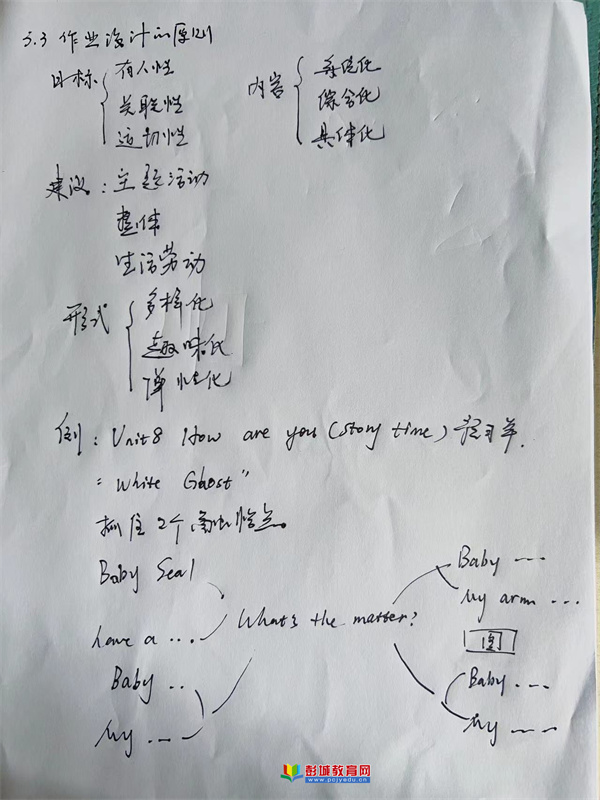 3.3 作业设计的原则
目标 { 有人性
关联性
运动性
内容 { 系统化
综合化
具体化
建议：主题活动
整体
生活劳动
形式 { 多样化
趣味化
弹性化
例：Unit8 How are you (story time) 学习单.
"White Ghost"
抓住2个
Baby Seal
have a ...
Baby ..
My ...
What's the matter?
Baby ...
My arm ...
图
Baby ...
My ....
彭城教育网
www.pcjyedu.cn